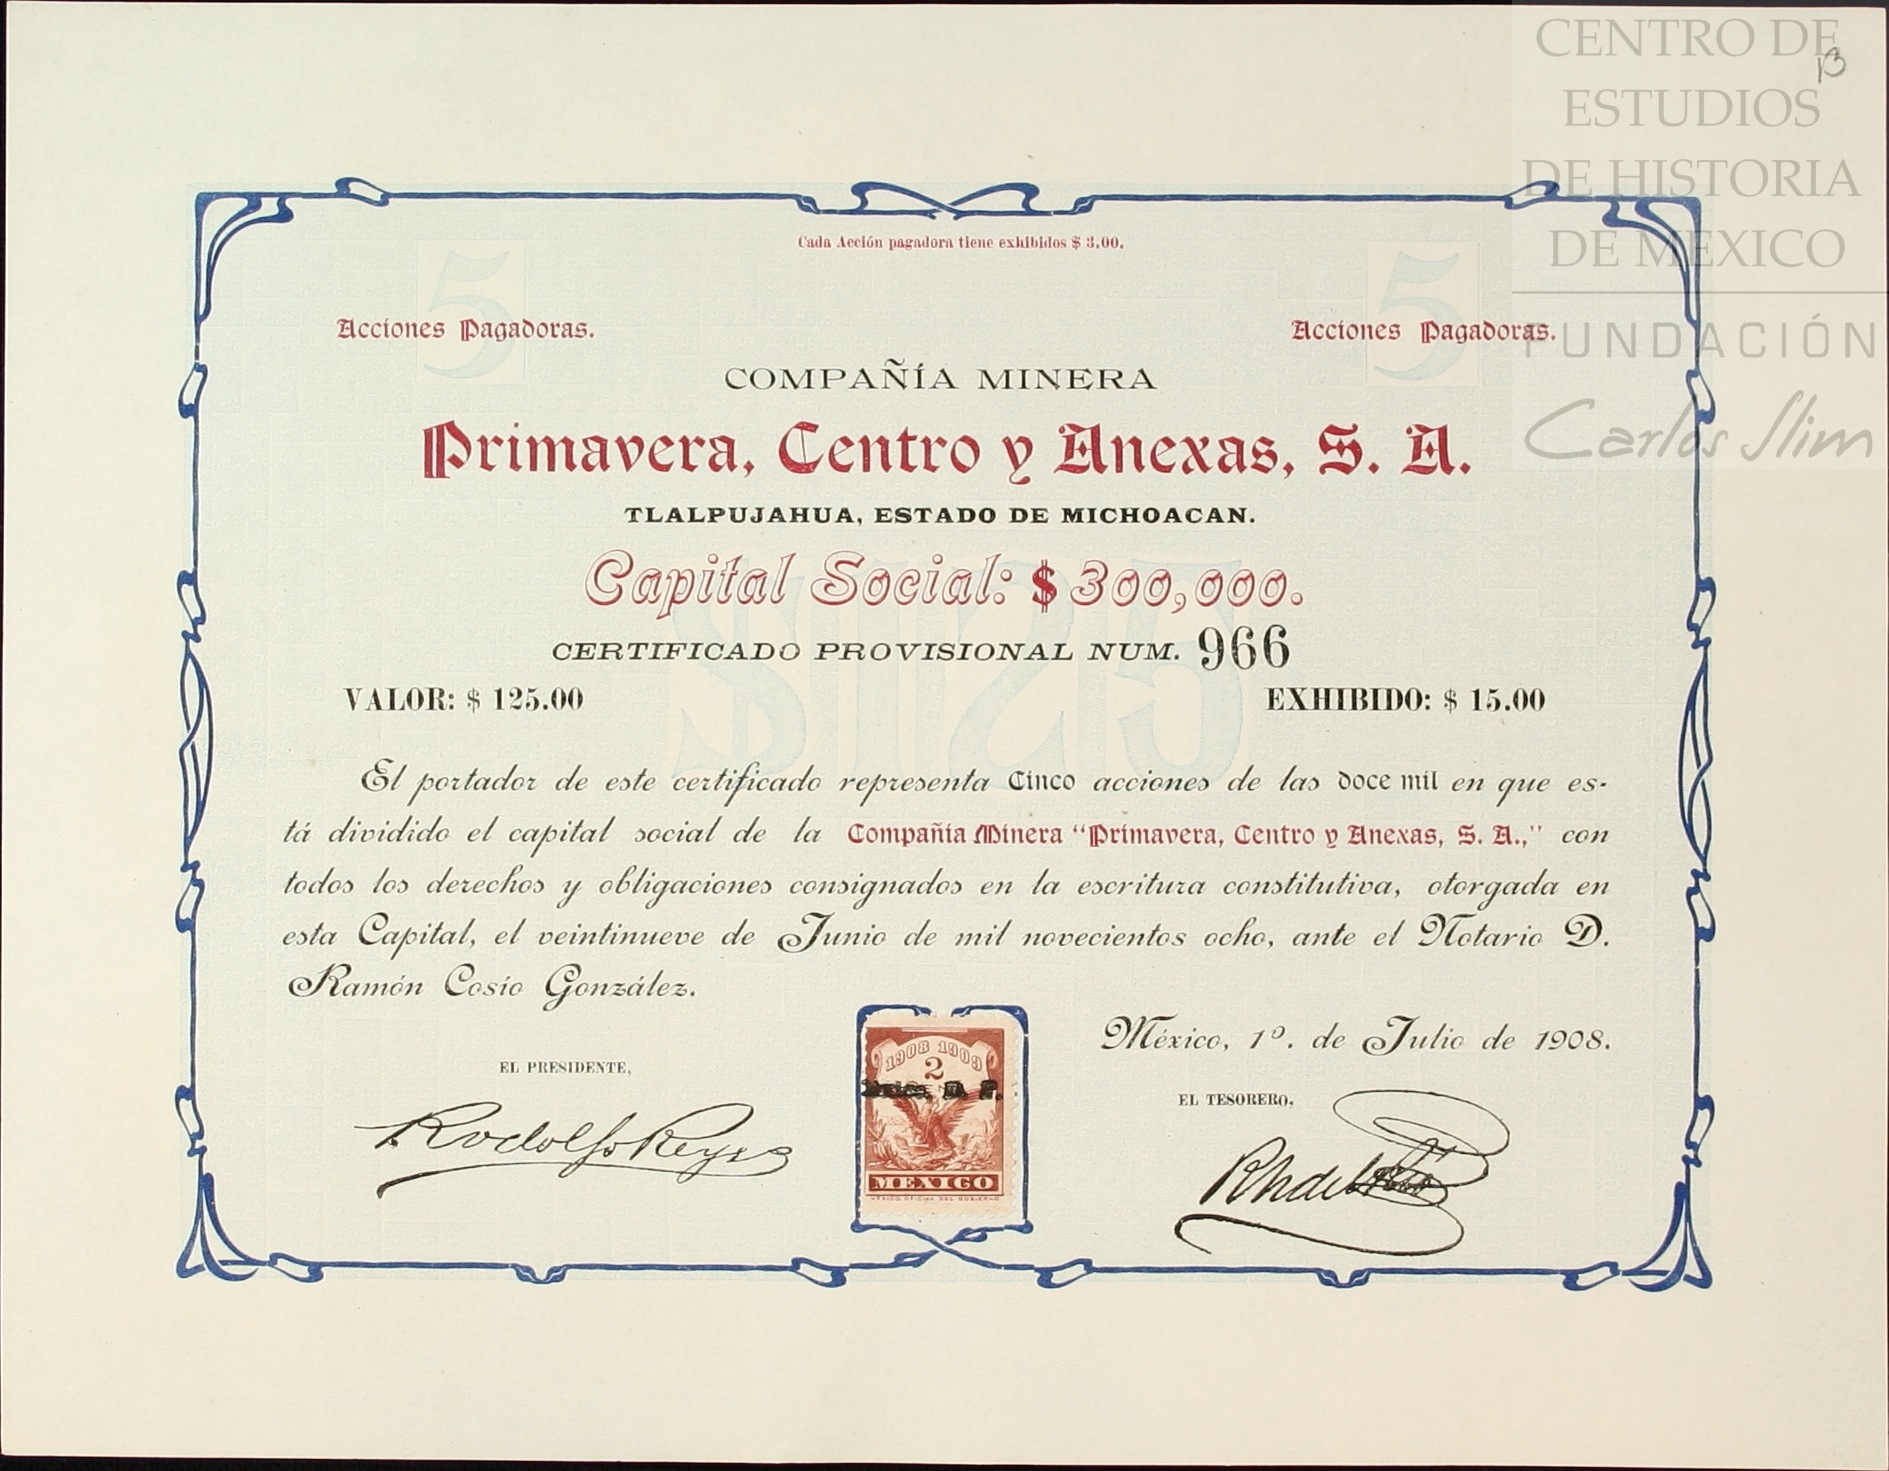 CENTRO DE
ESTUDIOS
DE HISTORIA
DE MEXICO
FUNDACIÓN
Carlos Slim
13
Cada Acción pagadora tiene exhibidos $ 3.00.
5 5
Acciones Pagadoras. Acciones Pagadoras.
COMPAÑÍA MINERA
Primavera, Centro y Anexas, S. A.
TLALPUJAHUA, ESTADO DE MICHOACAN.
Capital Social: $ 300,000.
CERTIFICADO PROVISIONAL NUM. 966
VALOR: $ 125.00 EXHIBIDO: $ 15.00
$125
El portador de este certificado representa Cinco acciones de las doce mil en que es-
tá dividido el capital social de la Compañía Minera "Primavera, Centro y Anexas, S. A.," con
todos los derechos y obligaciones consignados en la escritura constitutiva, otorgada en
esta Capital, el veintinueve de Junio de mil novecientos ocho, ante el Notario D.
Ramón Cosío González.
México, 1º. de Julio de 1908.
EL PRESIDENTE,
Rodolfo Reyes
1908 1909
2
MEXICO
EL TESORERO,